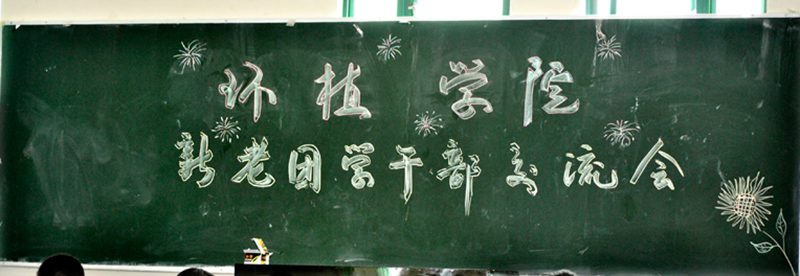 环植学院
新老团学干部交流会